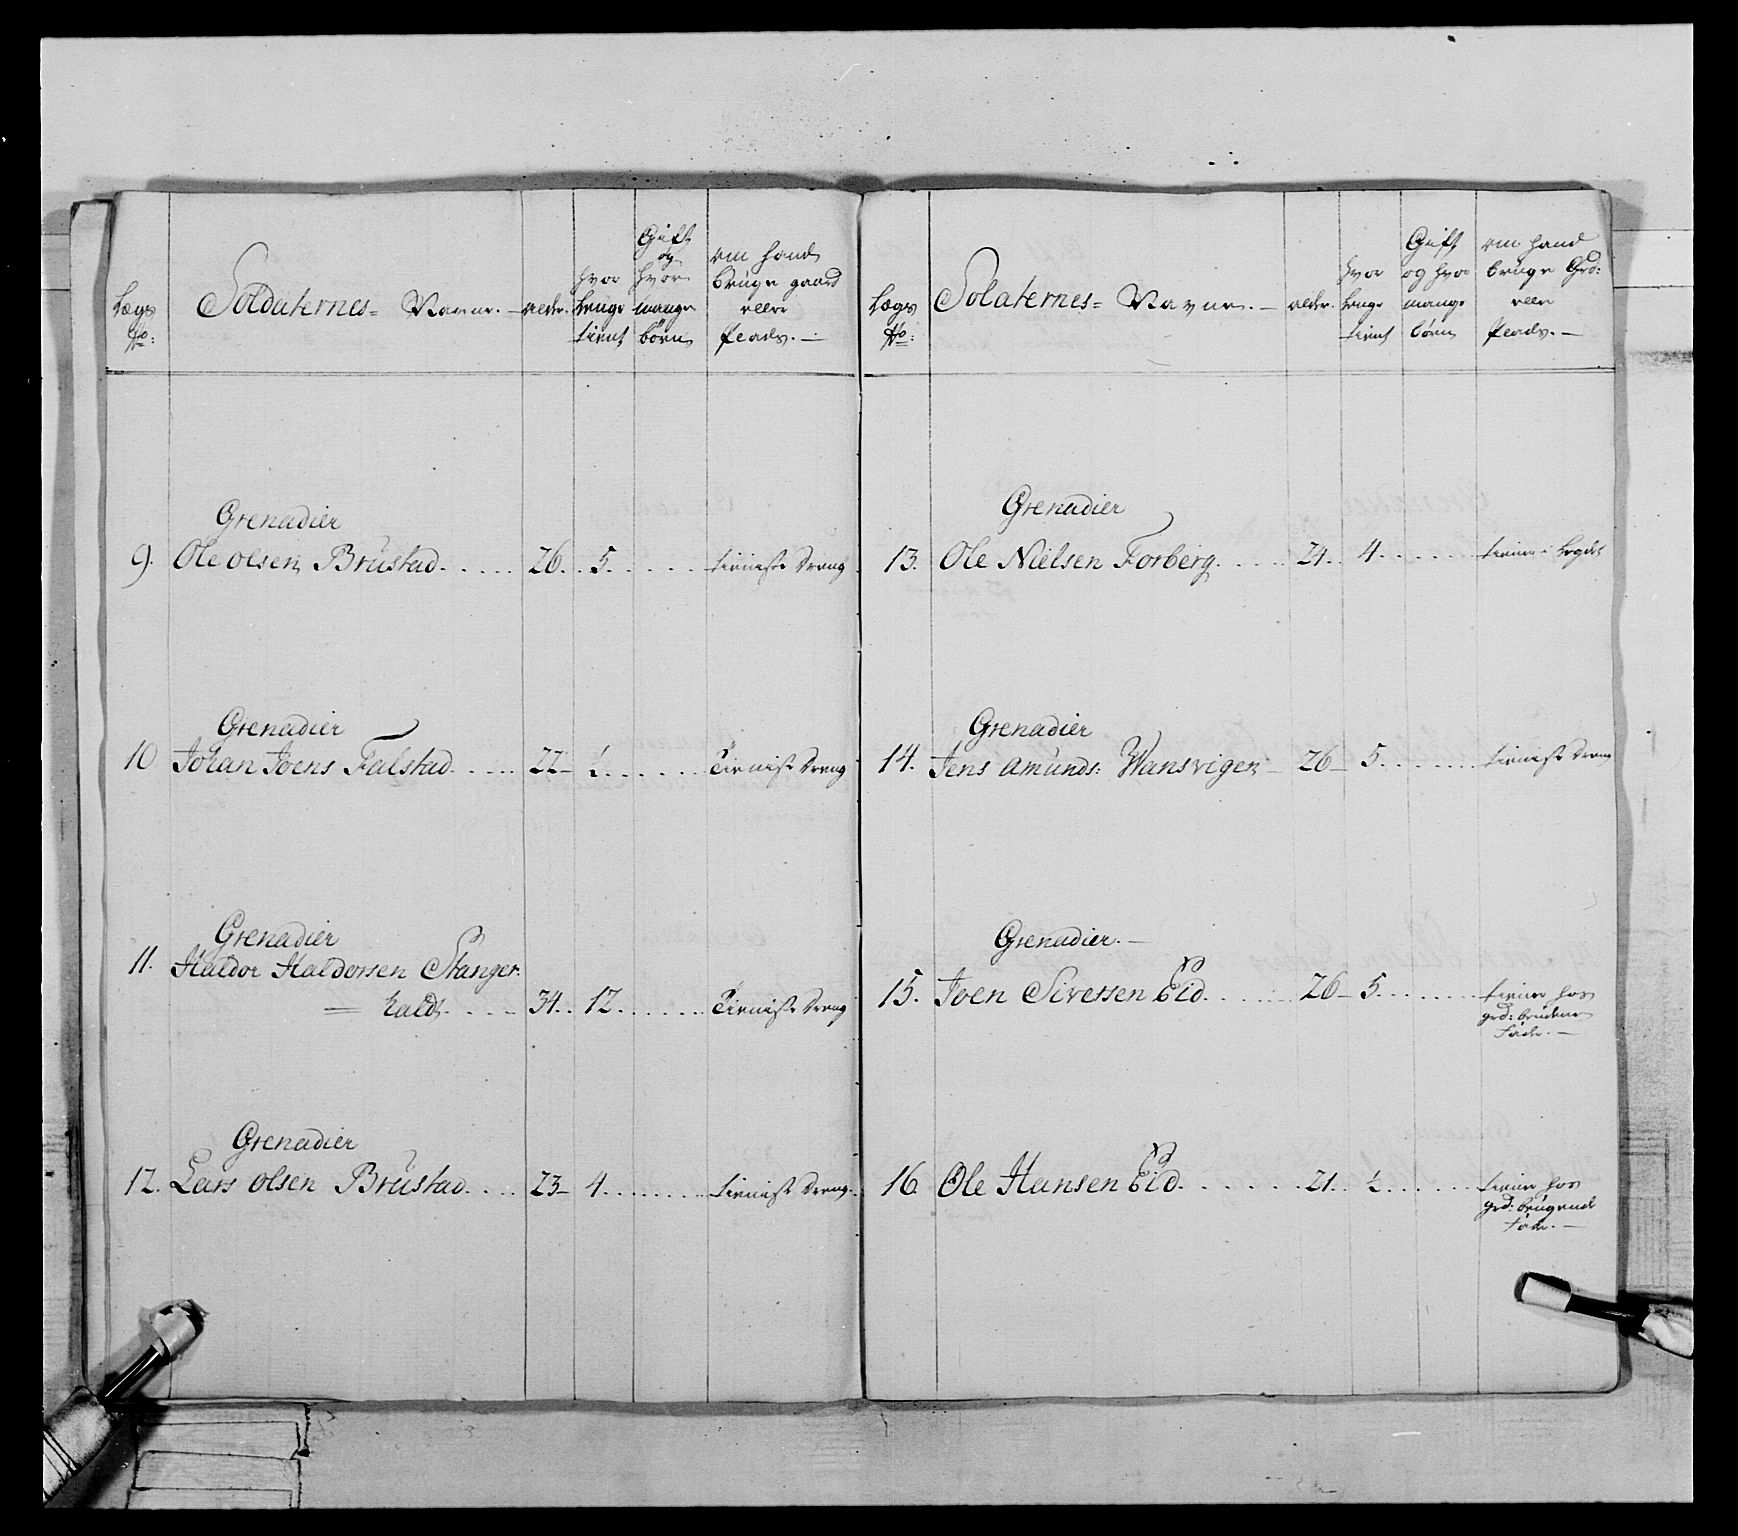 Lægs No:
Soldaternes= Navne.
alder.
hvor lenge tient
Gift og hvor mange børn
om hand bruge gaard eller Plads.
Grenadier
9. Ole olsen Brústad. 26. 5. tieniste dreng
Grenadier
10 Johan Joens Falstad. 22 ½ Tieniste dreng
Grenadier
11. Haldor Haldorsen Stanger=
hald. 34. 12. Tieniste dreng
Grenadier
12. Lars olsen Brústad. 23 4. tieniste dreng.
Lægs No:
Solaternes= Navne.
alder.
hvor lenge tient
Gift og hvor mange børn
om hand bruge Grd: eller Plads.
Grenadier
13. Ole Nielsen Forberg. 24. 4. tiener i
Grenadier
14. Jens Amúnds: Wansvigen 26 5. tieniste dreng
Grenadier.
15. Joen Siversen Eid. 26 5. tiener hos
grd:
Grenadier
16. Ole Hansen Eid. 21. ½ tiener hos
grd: brúgende